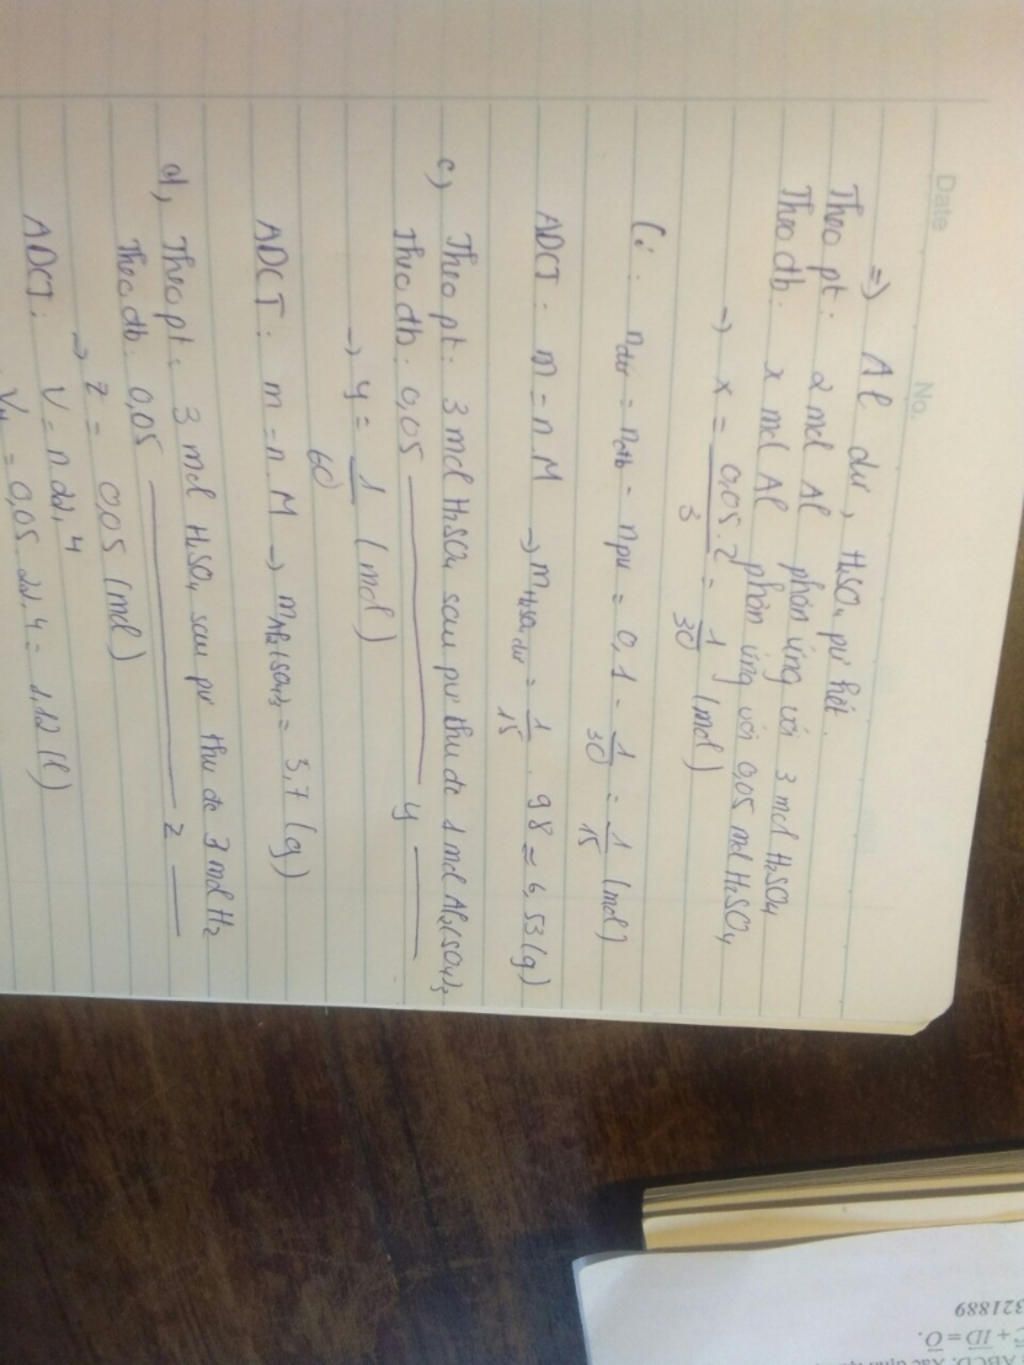 Date
No.
=) Al dư, H2SO4 pư hết.
Theo pt: 2 mol Al phản ứng với 3 mol H2SO4
Theo đb: x mol Al phản ứng với 0,05 mol H2SO4
→ x = 0,05.2/3 = 1/30 (mol)
ndư = nđb - npư = 0,1 - 1/30 = 1/15 (mol)
ADCT: m = n.M → mH2SO4 dư = 1/15 . 98 = 6,53 (g)
c) Theo pt: 3 mol H2SO4 sau pư thu đc 1 mol Al2(SO4)3
Theo đb: 0,05 ——— y ——
→ y = 1/60 (mol)
ADCT: m = n.M → mAl2(SO4)3 = 5,7 (g)
d, Theo pt: 3 mol H2SO4 sau pư thu đc 3 mol H2
Theo đb: 0,05 ——— z ——
→ z = 0,05 (mol)
ADCT: V = n.22,4
= 0,05.22,4 = 1,12 (l)
321889
+ ID = O.
ABCD.